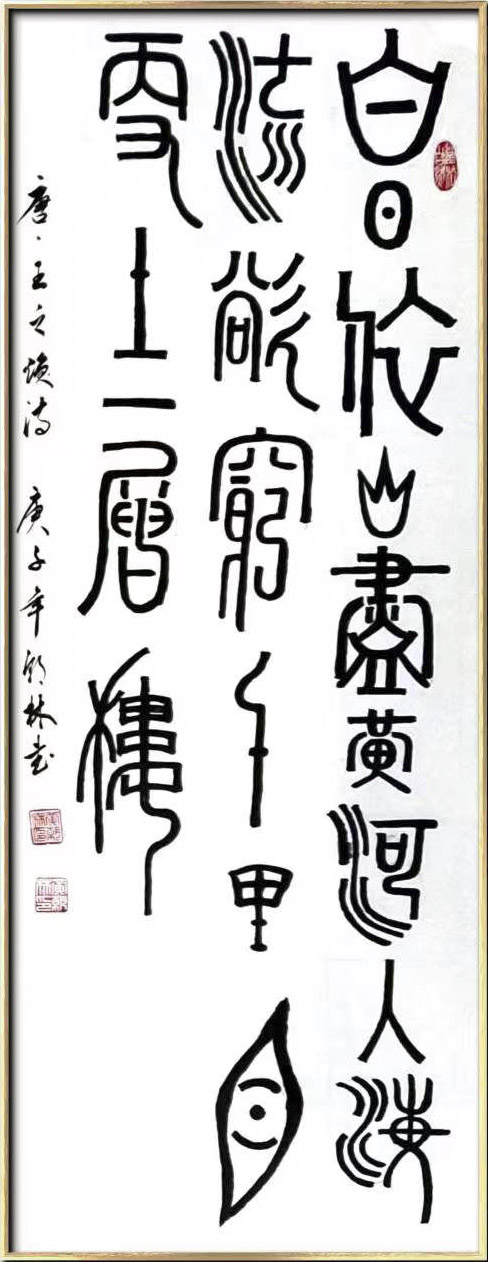 白日依山盡黄河入海
流欲窮千里目
更上一層樓
唐·王之焕诗 庚子年 林书